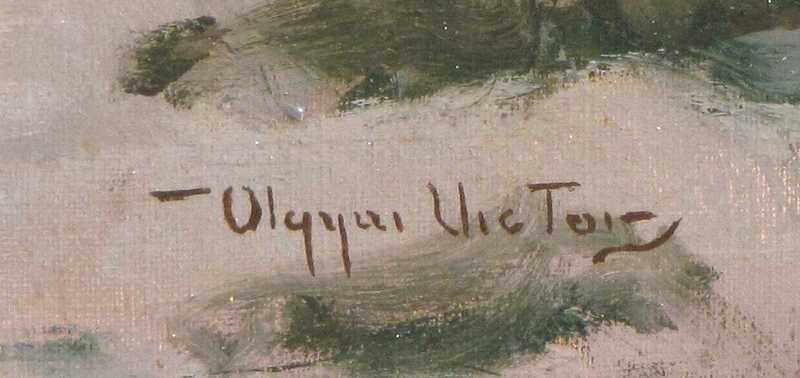 Olgyai Victor